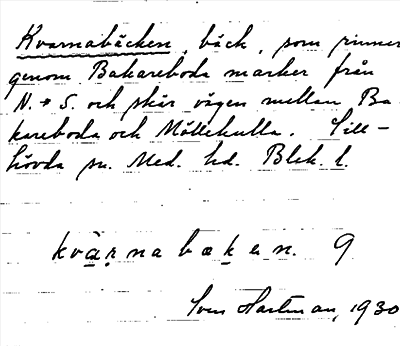 Kvarnabäcken, bäck, som rinner
genom Bakareboda marker från
N. → S. och skär vägen mellan Ba-
kareboda och Möllekulla. Till-
hövda sn. Med. hd. Blek. l.
kvàrnabæken. 9
Sven Hartman, 1930